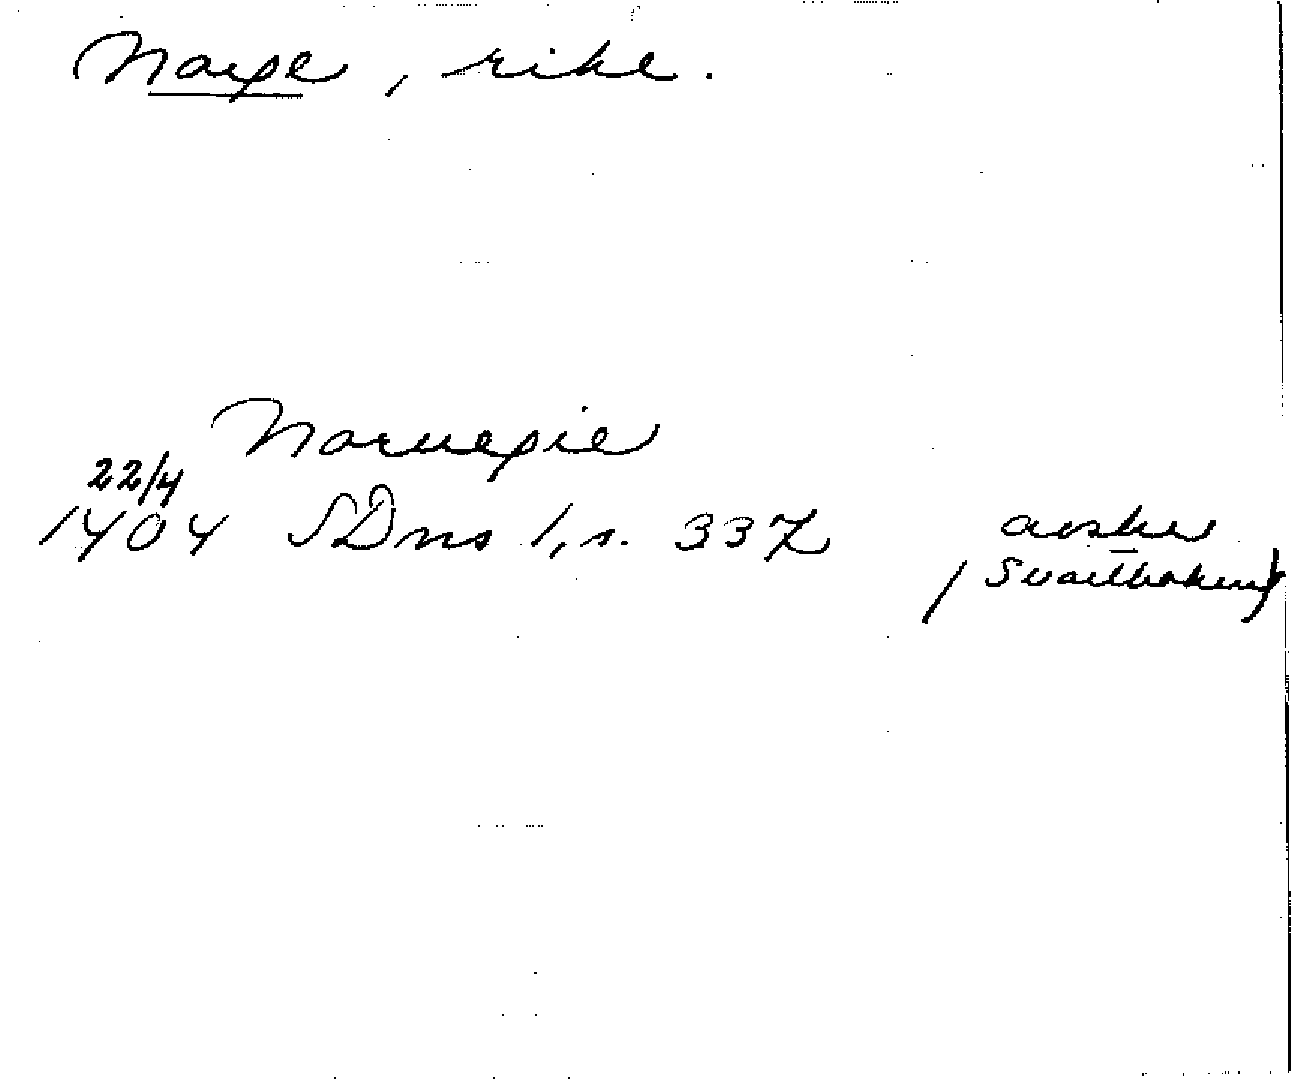 Norge, rike.
Norvegie
22/4
1404 SDns 1, s. 337 avskr
(Svartboken)